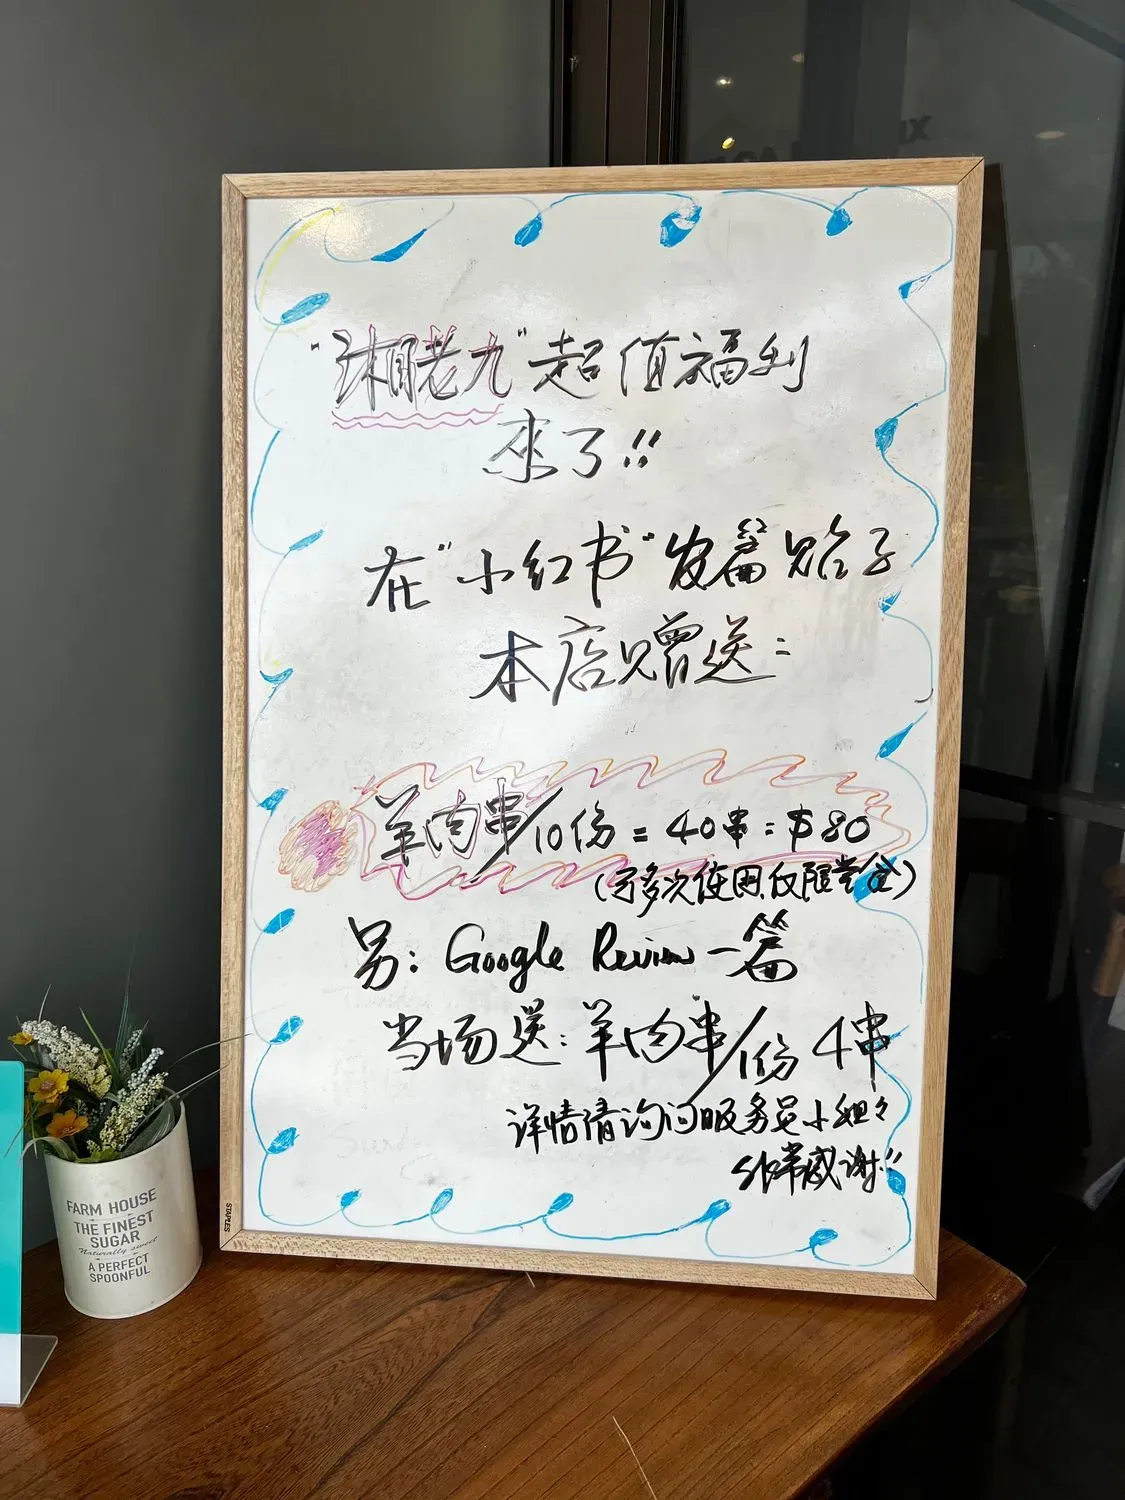 "湘老九"超值福利
來了!!
在"小红书"发篇贴子
本店赠送:
羊肉串/10份=40串=$80
(可多次使用,仅限堂食)
另: Google Review 一篇
当场送:羊肉串/1份 4串
详情请询问服务员小姐々
非常感谢!!
STAPLES
FARM HOUSE
THE FINEST
SUGAR
Naturally sweet
A PERFECT
SPOONFUL